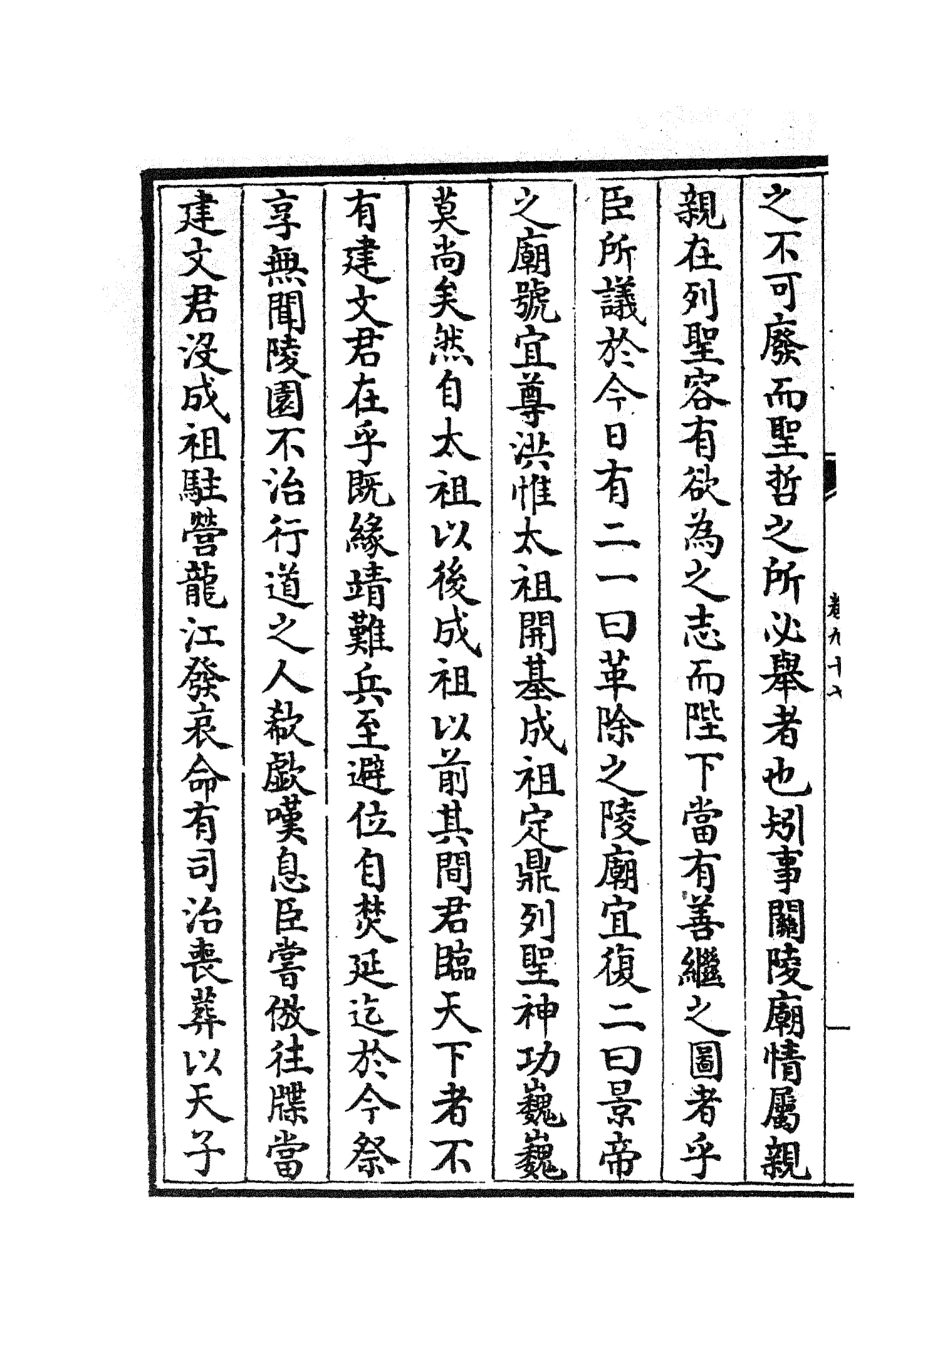 之不可廢而聖哲之所必舉者也矧事關陵廟情屬親
親在列聖容有欲為之志而陛下當有善繼之圖者乎
臣所議於今日有二一曰革除之陵廟宜復二曰景帝
之廟號宜尊洪惟太祖開基成祖定鼎列聖神功巍巍
莫尚矣然自太祖以後成祖以前其間君臨天下者不
有建文君在乎既緣靖難兵至避位自焚延迄於今祭
享無聞陵園不治行道之人欷歔嘆息臣嘗倣往牒當
建文君沒成祖駐營龍江發哀命有司治喪葬以天子
卷九十